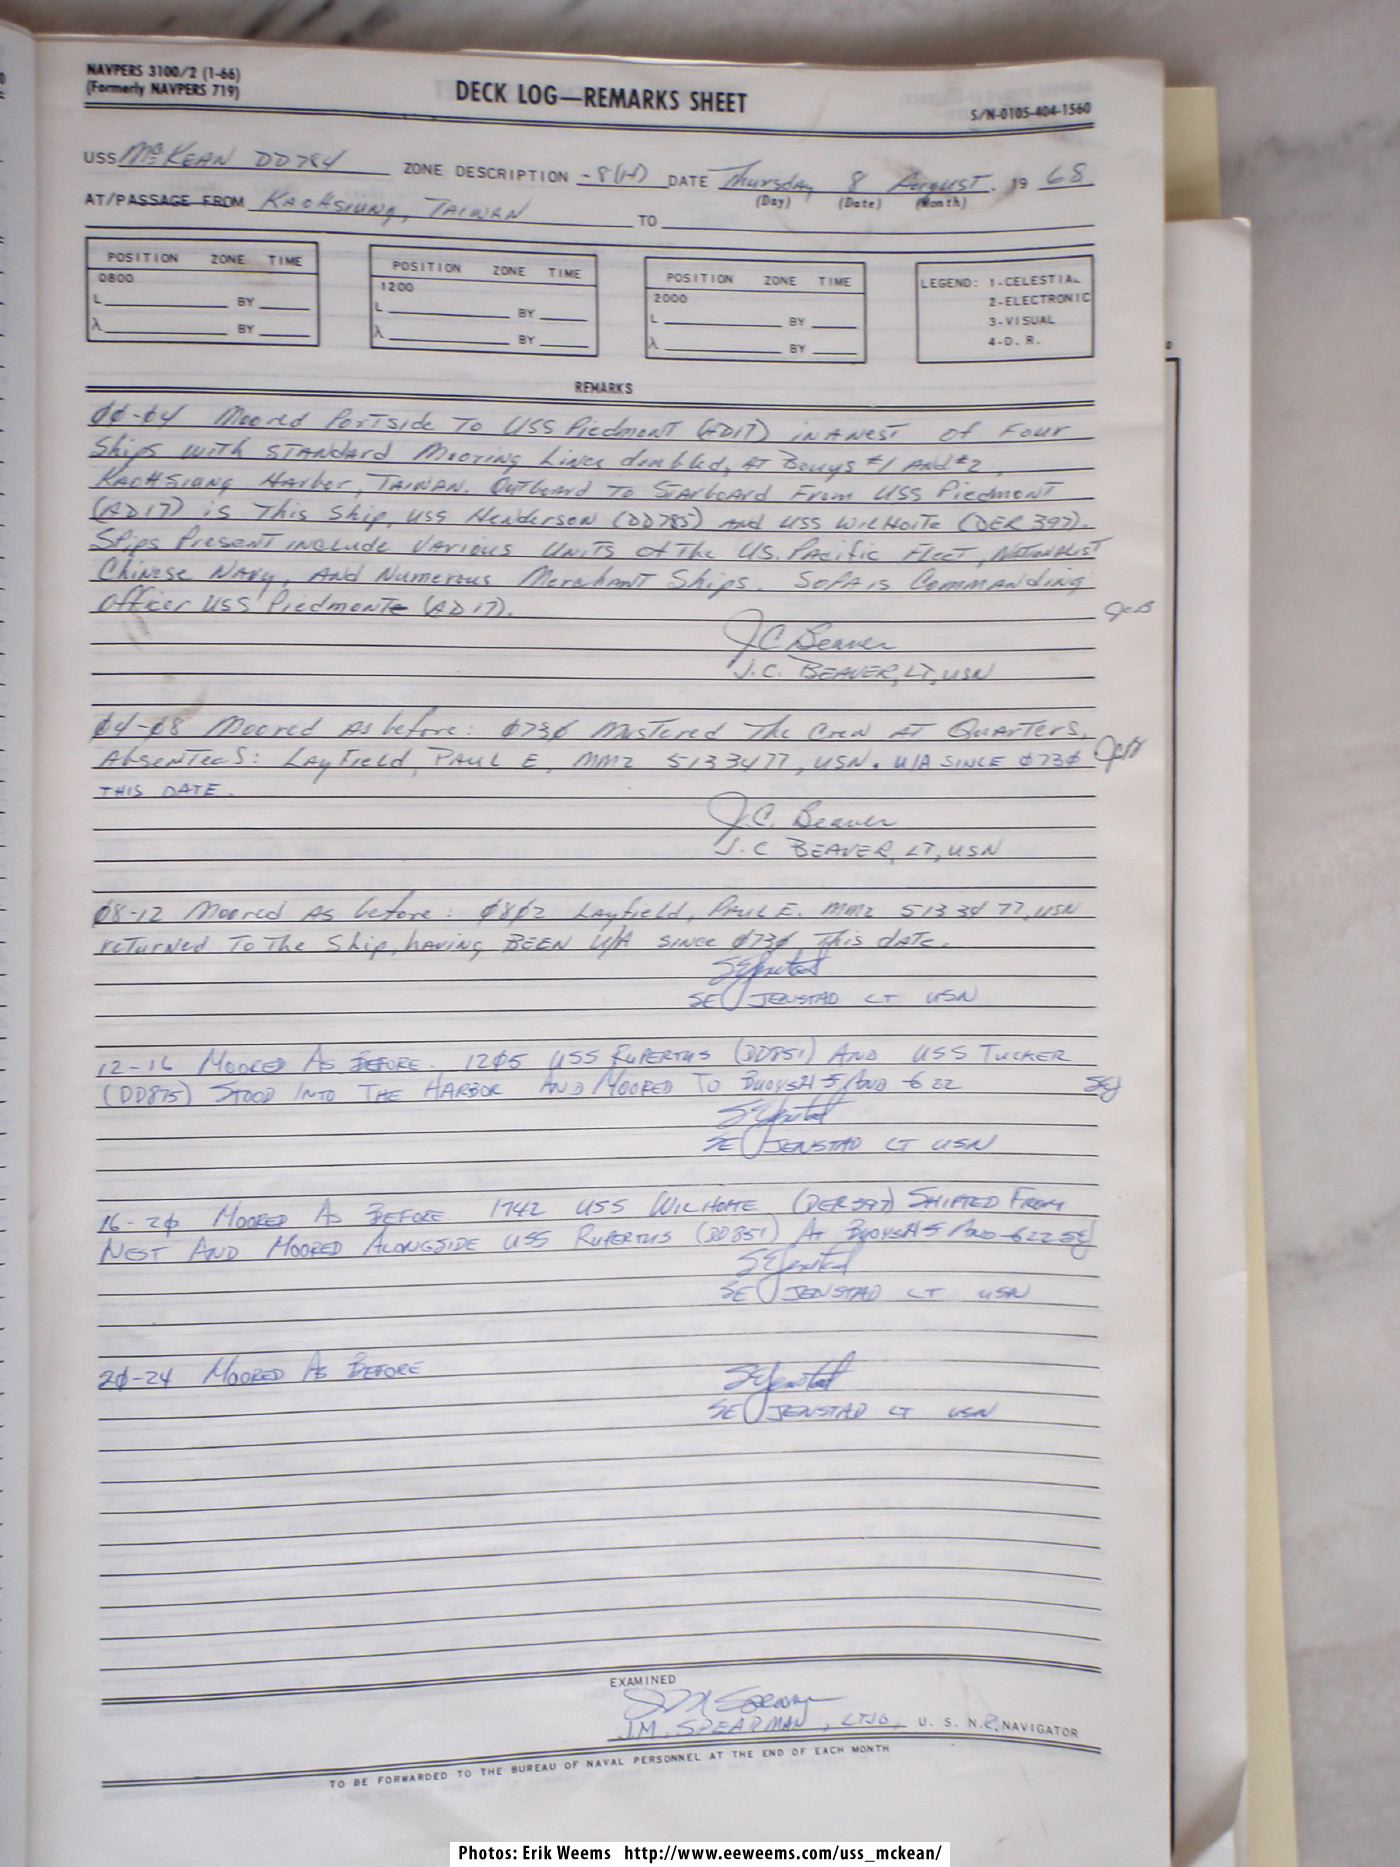 NAVPERS 3100/2 (1-66)
(Formerly NAVPERS 719)
DECK LOG—REMARKS SHEET
S/N-0105-404-1560
USS McKEAN DD784 ZONE DESCRIPTION -8(H) DATE Thursday 8 August, 19 68
(Day) (Date) (Month)
AT/PASSAGE FROM KAOHSIUNG, TAIWAN TO
POSITION ZONE TIME
0800
L BY
λ BY
POSITION ZONE TIME
1200
L BY
λ BY
POSITION ZONE TIME
2000
L BY
λ BY
LEGEND: 1-CELESTIAL
2-ELECTRONIC
3-VISUAL
4-D. R.
REMARKS
00-04 Moored Portside To USS Piedmont (AD17) in a nest of Four
Ships with STANdard Mooring Lines doubled, AT Bouys #1 And #2,
KAOHSIung Harbor, TAIWAN. Outboard To Starboard From USS Piedmont
(AD17) is This Ship, USS Henderson (DD785) and USS Wilhoite (DER 397).
Ships Present include Various Units of The U.S. Pacific Fleet, Nationalist
Chinese Navy, And Numerous Merchant Ships. SOPA is Commanding
Officer USS Piedmont (AD17). JCB
J C Beaver
J.C. BEAVER, LT, USN
04-08 Moored As before: 0730 Mustered The Crew AT Quarters.
AbsenTeeS: Layfield, PAUL E, MM2 5133477, USN. U/A SINCE 0730 JCB
THIS DATE.
J.C. Beaver
J.C BEAVER, LT, USN
08-12 Moored As before: 0802 Layfield, PAUL E. MM2 513 34 77, USN
returned To The Ship, having BEEN U/A since 0730 This date.
SE Jenstad
SE JENSTAD LT USN
12-16 MOORED AS BEFORE. 1205 USS RUPERTUS (DD851) AND USS TUCKER
(DD875) STOOD INTO THE HARBOR AND MOORED TO BUOYS 5 AND 6 SEJ
SE Jenstad
SE JENSTAD LT USN
16-20 MOORED AS BEFORE 1742 USS WILHOITE (DER397) SHIFTED FROM
NEST AND MOORED ALONGSIDE USS RUPERTUS (DD851) AT BUOYS 5 AND 6 SEJ
SE Jenstad
SE JENSTAD LT USN
20-24 MOORED AS BEFORE
SE Jenstad
SE JENSTAD LT USN
EXAMINED
J.M. SPEARMAN, LTJG, U. S. N.R, NAVIGATOR
TO BE FORWARDED TO THE BUREAU OF NAVAL PERSONNEL AT THE END OF EACH MONTH
Photos: Erik Weems http://www.eeweems.com/uss_mckean/